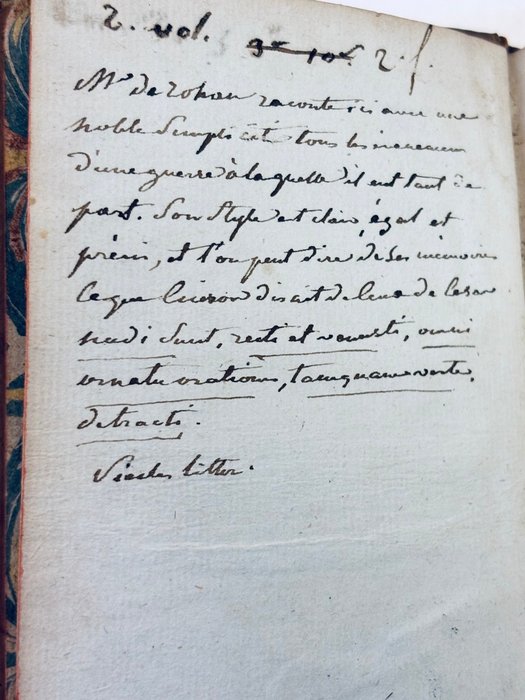 2. vol. 3# 10s. 2.f.
Mr. de Rohan raconte ici avec une
noble simplicité tous les
d'une guerre à laquelle il eut tant de
part. Son style est clair, égal et
précis, et l'on peut dire de ses mémoires
ce que Ciceron disait de ceux de Cesar
nudi sunt, recti et venusti, omni
ornatu orationis, tamquam veste,
detracto.
Siecles litter.